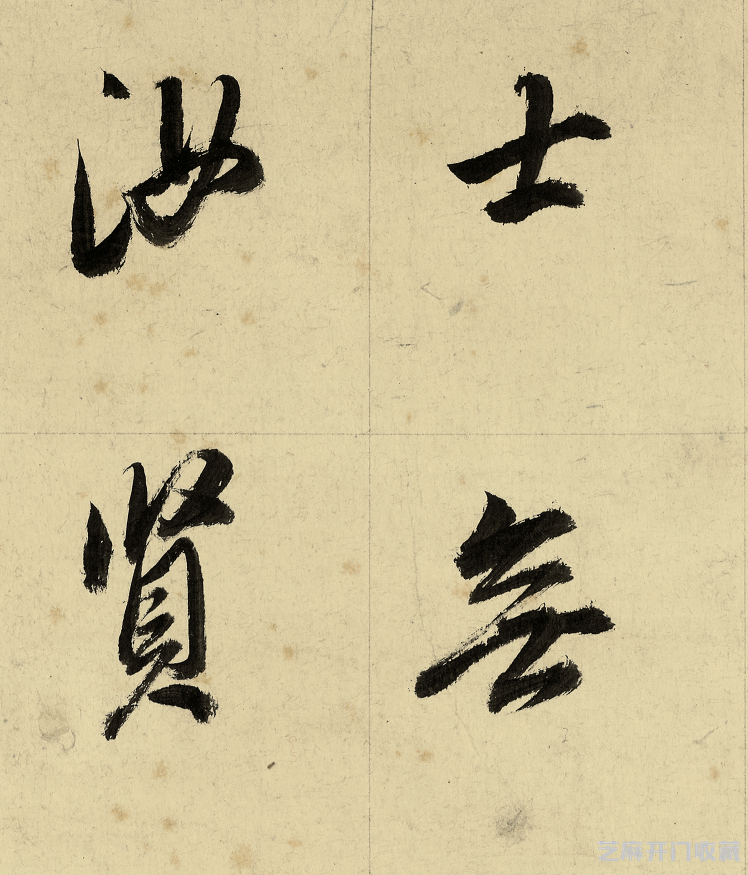 士無
汝賢
芝麻开门收藏